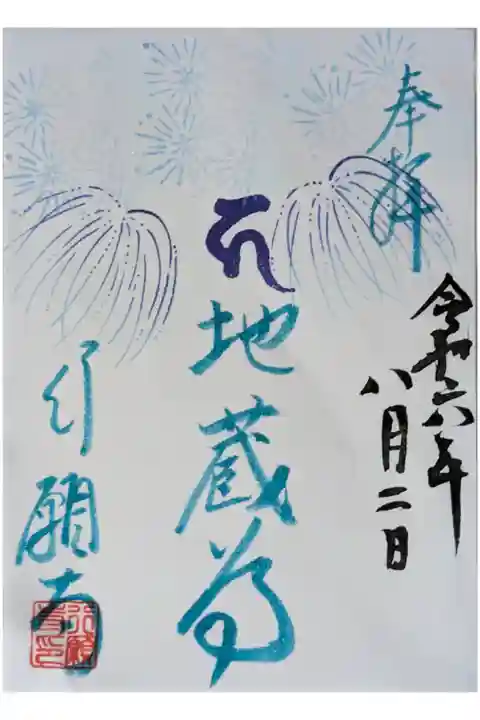 奉拝
令和六年
八月二日
地蔵尊
行願寺